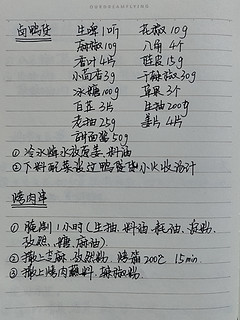 卤鸭货
生啤1听 花椒10g
麻椒10g 八角4个
香叶4片 桂皮15g
小茴香3g 干麻椒30g
冰糖100g 草果3个
白芷3片 生抽200g
老抽25g 姜片4片
甜面酱50g
①冷水焯水放葱姜、料酒
②下料配菜没过鸭货小火收汤汁
烤肉串
①腌制1小时(生抽、料酒、耗油、淀粉、
孜然、糖、麻油)
②撒上芝麻、孜然粉 烤箱200℃ 15min.
③撒上烤肉蘸料、辣椒粉.